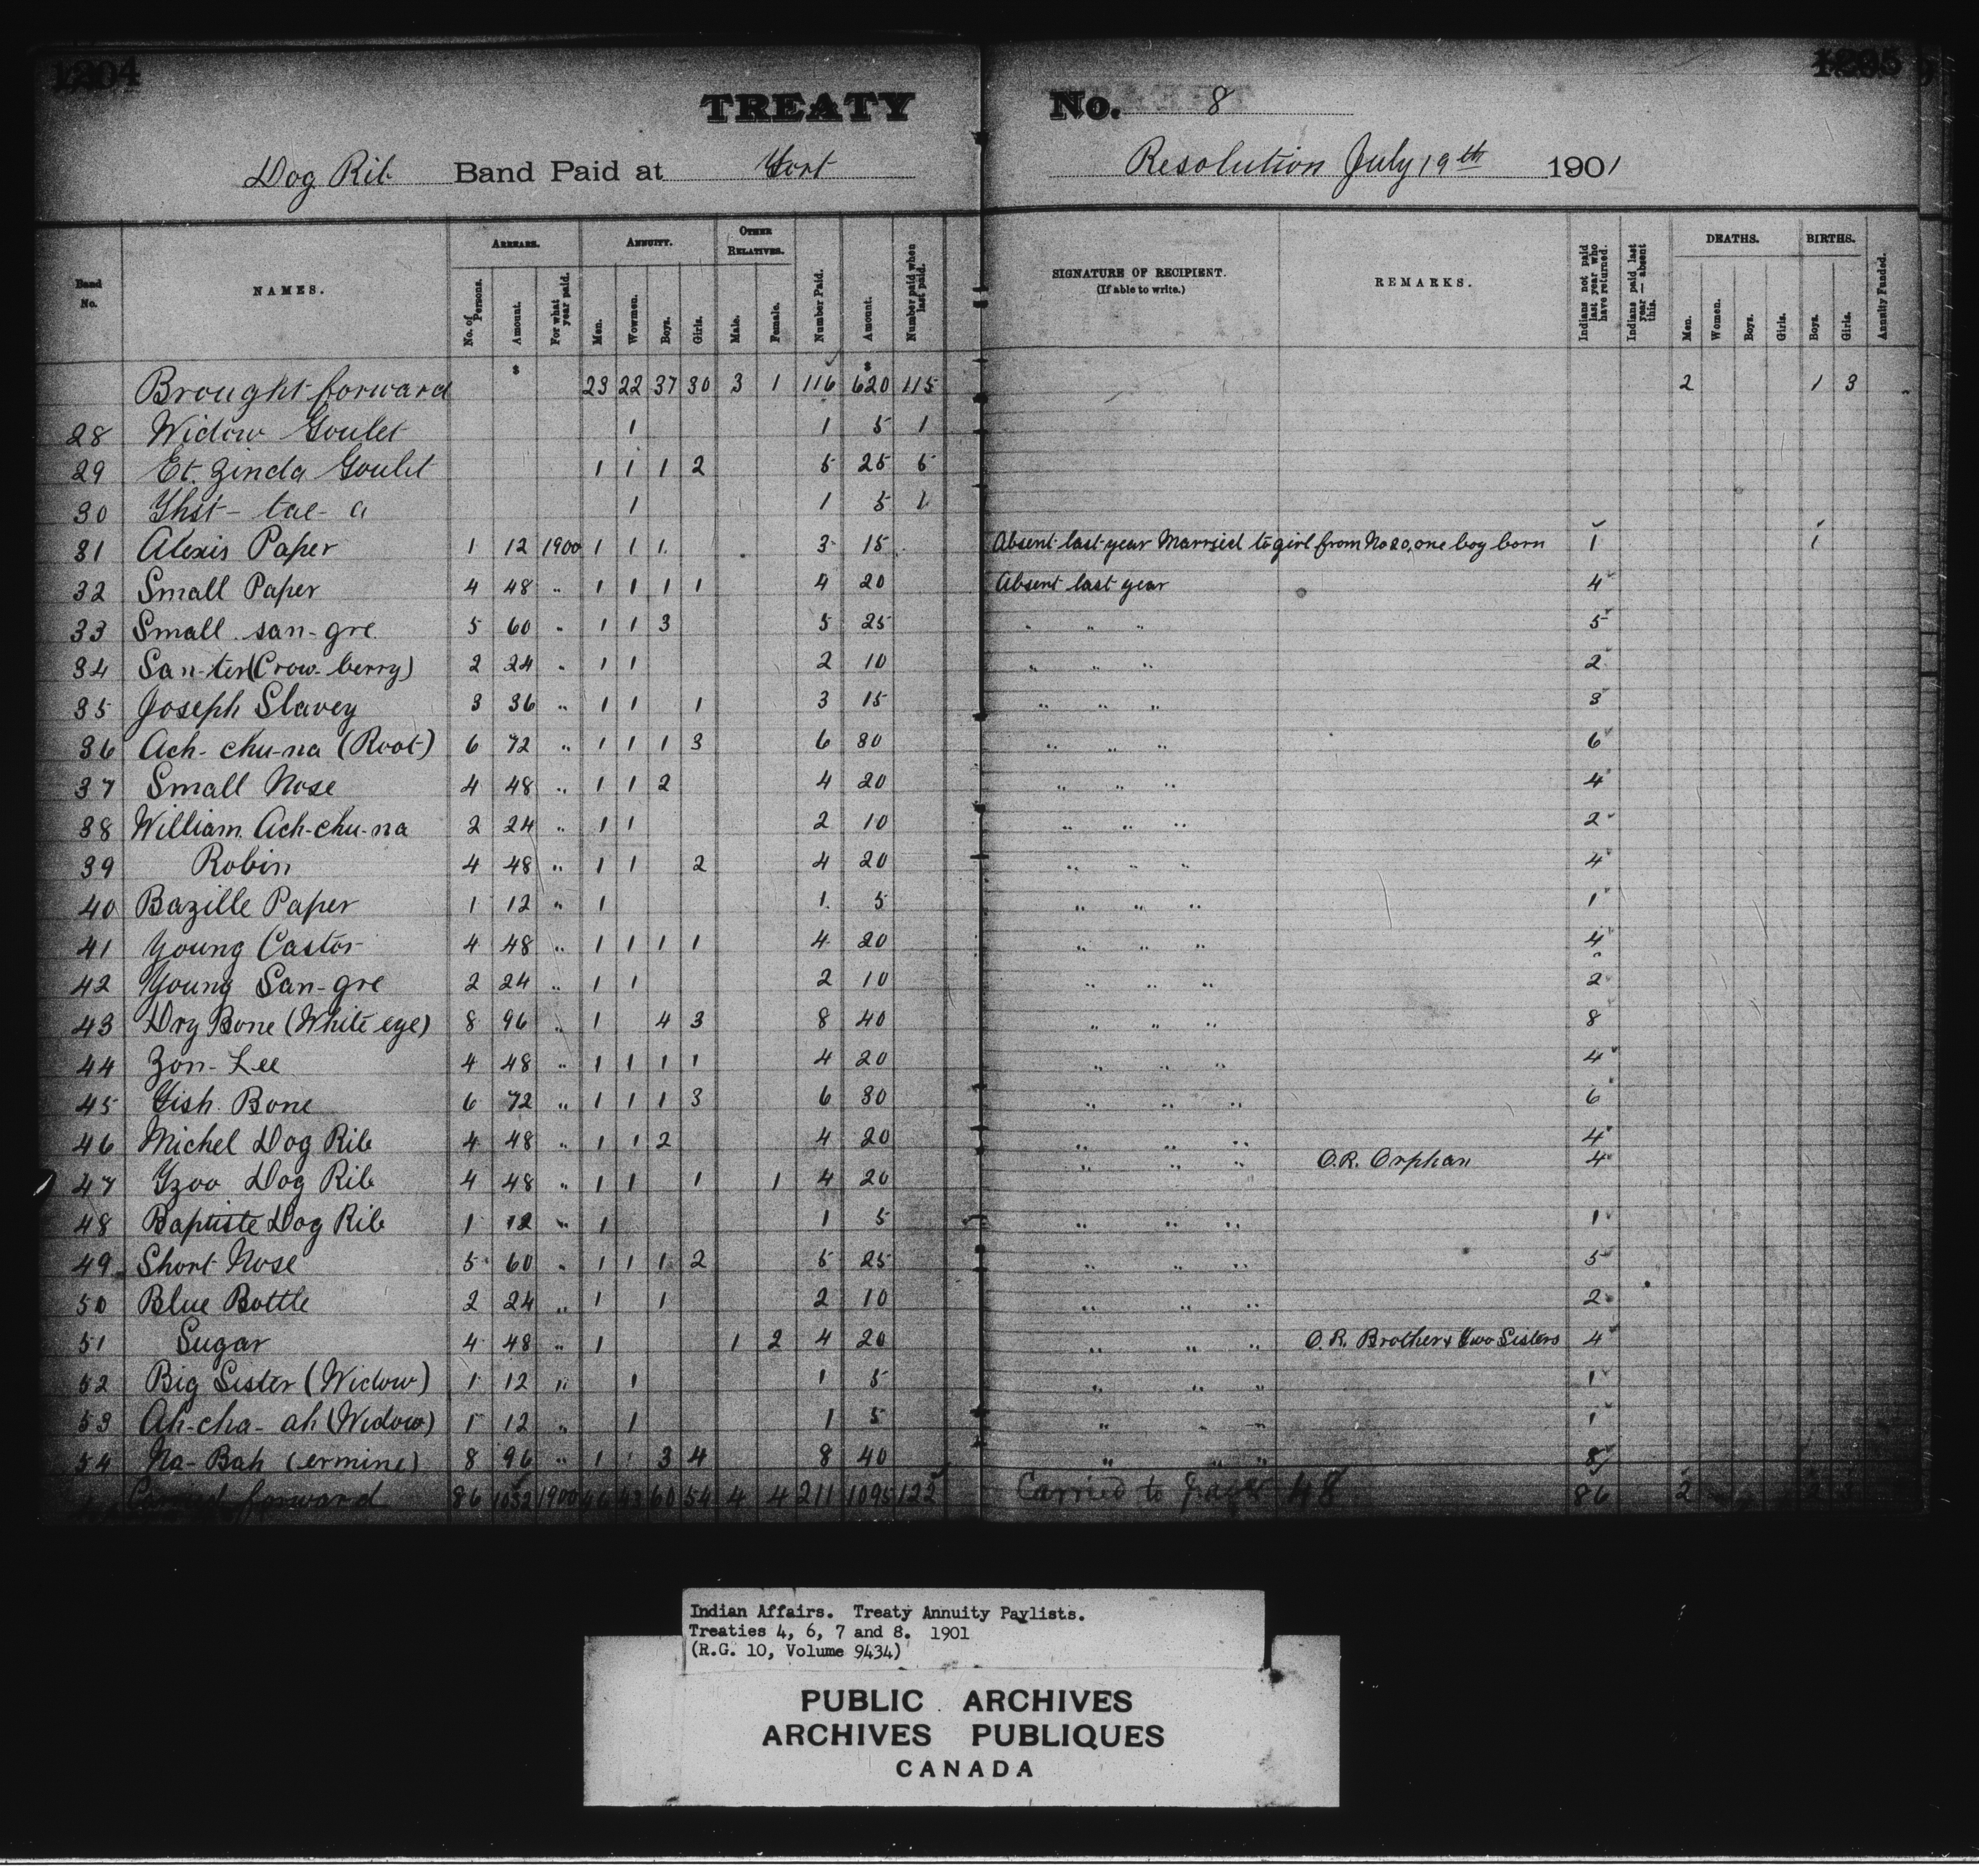 1204
1205
TREATY No. 8
Dog Rib Band Paid at Fort Resolution July 19th 1901
Band No. NAMES. ARREARS. No. of Persons. Amount. For what year paid. ANNUITY. Men. Wowmen. Boys. Girls. OTHER RELATIVES. Male. Female. Number Paid. Amount. Number paid when last paid. SIGNATURE OF RECIPIENT. (If able to write.) REMARKS. Indians not paid last year who have returned. Indians paid last year — absent this. DEATHS. Men. Women. Boys. Girls. BIRTHS. Boys. Girls. Annuity Funded.
$ $
Brought forward 23 22 37 30 3 1 116 620 115 2 1 3
28 Widow Goulet 1 1 5 1
29 Et. Zinda Goulet 1 1 1 2 5 25 5
30 Yhst- tae- a 1 1 5 1
31 Alexis Paper 1 12 1900 1 1 1 3 15 Absent last year Married to girl from No 20, one boy born 1 1
32 Small Paper 4 48 " 1 1 1 1 4 20 Absent last year 4
33 Small san-gre 5 60 " 1 1 3 5 25 " " " 5
34 San-ter (Crow-berry) 2 24 " 1 1 2 10 " " " 2
35 Joseph Slavey 3 36 " 1 1 1 3 15 " " " 3
36 Ach-chu-na (Root) 6 72 " 1 1 1 3 6 30 " " " 6
37 Small Nose 4 48 " 1 1 2 4 20 " " " 4
38 William Ach-chu-na 2 24 " 1 1 2 10 " " " 2
39 Robin 4 48 " 1 1 2 4 20 " " " 4
40 Bazille Paper 1 12 " 1 1 5 " " " 1
41 Young Castor 4 48 " 1 1 1 1 4 20 " " " 4
42 Young San-gre 2 24 " 1 1 2 10 " " " 2
43 Dry Bone (White eye) 8 96 " 1 4 3 8 40 " " " 8
44 Zon-Lee 4 48 " 1 1 1 1 4 20 " " " 4
45 Fish Bone 6 72 " 1 1 1 3 6 30 " " " 6
46 Michel Dog Rib 4 48 " 1 1 2 4 20 " " " 4
47 Gzoo Dog Rib 4 48 " 1 1 1 1 4 20 " " " O.R. Orphan 4
48 Baptiste Dog Rib 1 12 " 1 1 5 " " " 1
49 Short Nose 5 60 " 1 1 1 2 5 25 " " " 5
50 Blue Bottle 2 24 " 1 1 2 10 " " " 2
51 Sugar 4 48 " 1 1 2 4 20 " " " O.R. Brother & two Sisters 4
52 Big Sister (Widow) 1 12 " 1 1 5 " " " 1
53 Ah-cha-ah (Widow) 1 12 " 1 1 5 " " " 1
54 Na-Bah (ermine) 8 96 " 1 1 3 4 8 40 " " " 8
Carried forward 86 1032 1900 46 43 60 54 4 4 211 1095 122 Carried to page 48 86 2 2 3
Indian Affairs. Treaty Annuity Paylists.
Treaties 4, 6, 7 and 8. 1901
(R.G. 10, Volume 9434)
PUBLIC ARCHIVES
ARCHIVES PUBLIQUES
CANADA